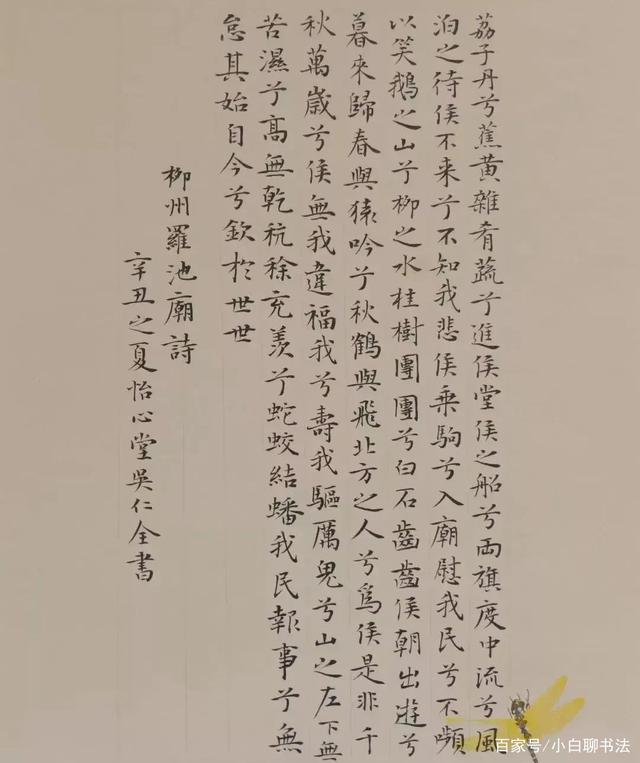 荔子丹兮蕉黄雜肴蔬兮進侯堂侯之船兮兩旗度中流兮風
泊之待侯不来兮不知我悲侯乘駒兮入廟慰我民兮不嚬
以笑鵝之山兮柳之水桂樹團團兮白石齒齒侯朝出遊兮
暮來歸春與猿吟兮秋鶴與飛北方之人兮爲侯是非千
秋萬歲兮侯無我違福我兮壽我驅厲鬼兮山之左下無
苦濕兮高無乾秔稌充羨兮蛇蛟結蟠我民報事兮無
怠其始自今兮欽於世世
柳州羅池廟詩
辛丑之夏怡心堂吳仁全書
百家号/小白聊书法